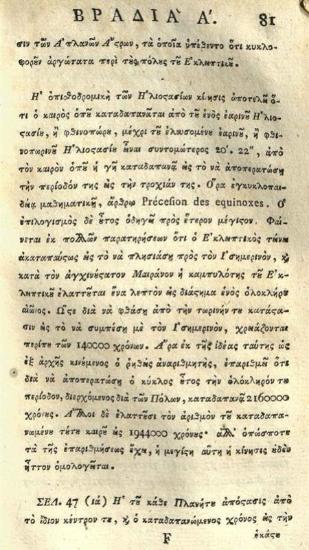 ΒΡΑΔΙΑ Α΄. 81
σιν τῶν Ἀπλανῶν Ἄςρων, τὰ ὁποῖα ὑπέθεντο ὅτι κυκλο-
φοροῦν ἀργώτατα περὶ τοὺς πόλους τοῦ Ἐκληπτικοῦ.
Ἡ ὀπισθοδρομικὴ τῶν Ἡλιοςασίων κίνησις ἀποτελεῖ ὅ-
τι ὁ καιρὸς ὁποῦ καταδαπανᾶται ἀπὸ τοῦ ἑνὸς ἐαρινοῦ Ἡλιο-
ςασίου, ἢ φθινοπώρου, μέχρι τοῦ ἐλευσομένου ἐαρινοῦ, ἢ φθι-
νοπωρινοῦ Ἡλιοςασίου εἶναι συντομώτερος 20΄. 22΄΄, ἀπὸ
τὸν καιρὸν ὁποῦ ἡ γῆ καταδαπανᾷ εἰς τὸ νὰ ἀποπερατώσῃ
τὴν περίοδόν της εἰς τὴν τροχιάν της. Ὅρα ἐγκυκλοπαι-
δεία μαθηματικῇ, ἄρθρῳ Précession des equinoxes. Ὁ
ἐπιλογισμὸς δὲ οὗτος ὁδηγεῖ πρὸς ἕτερον μέγιςον. Φαί-
νεται ἐκ πολλῶν παρατηρήσεων ὅτι ὁ Ἐκληπτικὸς τείνει
ἀκαταπαύςως εἰς τὸ νὰ πλησιάσῃ πρὸς τὸν Ἰσημερινόν, καὶ
κατὰ τὸν ἀγχινέςατον Μαιράνον ἡ καμπυλότης τοῦ Ἐκ-
ληπτικοῦ ἐλαττοῦται ἕνα λεπτὸν εἰς διάςημα ἑνὸς ὁλοκλήρου
αἰῶνος. Ὥςε διὰ νὰ φθάσῃ ἀπὸ τὴν τωρινήν του κατάςα-
σιν εἰς τὸ νὰ συμπέσῃ μὲ τὸν Ἰσημερινόν, χρειάζονται
περίπου τῶν 140000 χρόνων. Ἄρα ἐκ τῆς ἰδέας ταύτης ὡς
ἐξ ἀρχῆς κινούμενος ὁ ῥηθεὶς ἀναριθμητής, ἐπαριθμεῖ ὅτι
διὰ νὰ ἀποπερατώσῃ ὁ κύκλος οὗτος τὴν ὁλόκληρόν του
περίοδον, διερχόμενος διὰ τῶν Πόλων, καταδαπανᾷ 2160000
χρόνους. Ἄλλοι δὲ ἐλαττοῦσι τὸν ἀριθμὸν τοῦ καταδαπα-
νωμένου τούτου καιροῦ εἰς 1944000 χρόνους· ἀλλ' ὁπώςποτε
τὰ τῆς ἐπαριθμήσεως ἔχει, ἡ μεγίςη αὕτη κίνησις οὐδὲν
ἧττον ὁμολογεῖται.
ΣΕΛ. 47 (ιά) Ἡ τοῦ κάθε Πλανήτου ἀπόςασις ἀπὸ
τὸ ἴδιον κέντρον του, καὶ ὁ καταδαπανώμενος χρόνος εἰς τὴν
F ἑκάςου